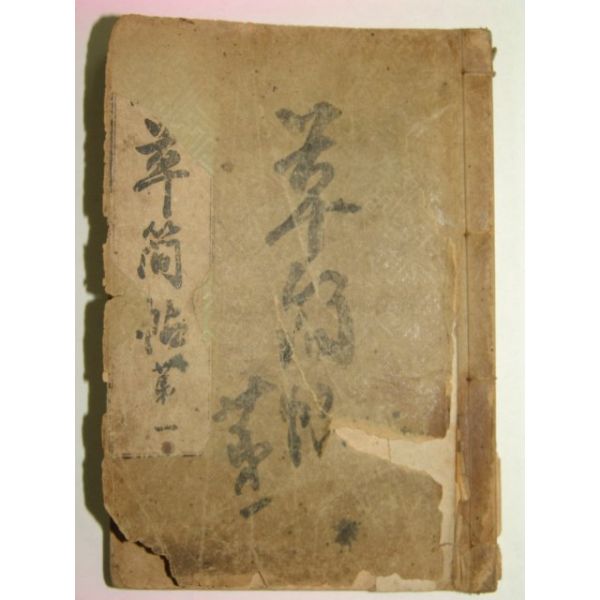 草簡帖
第一
草簡帖
第一